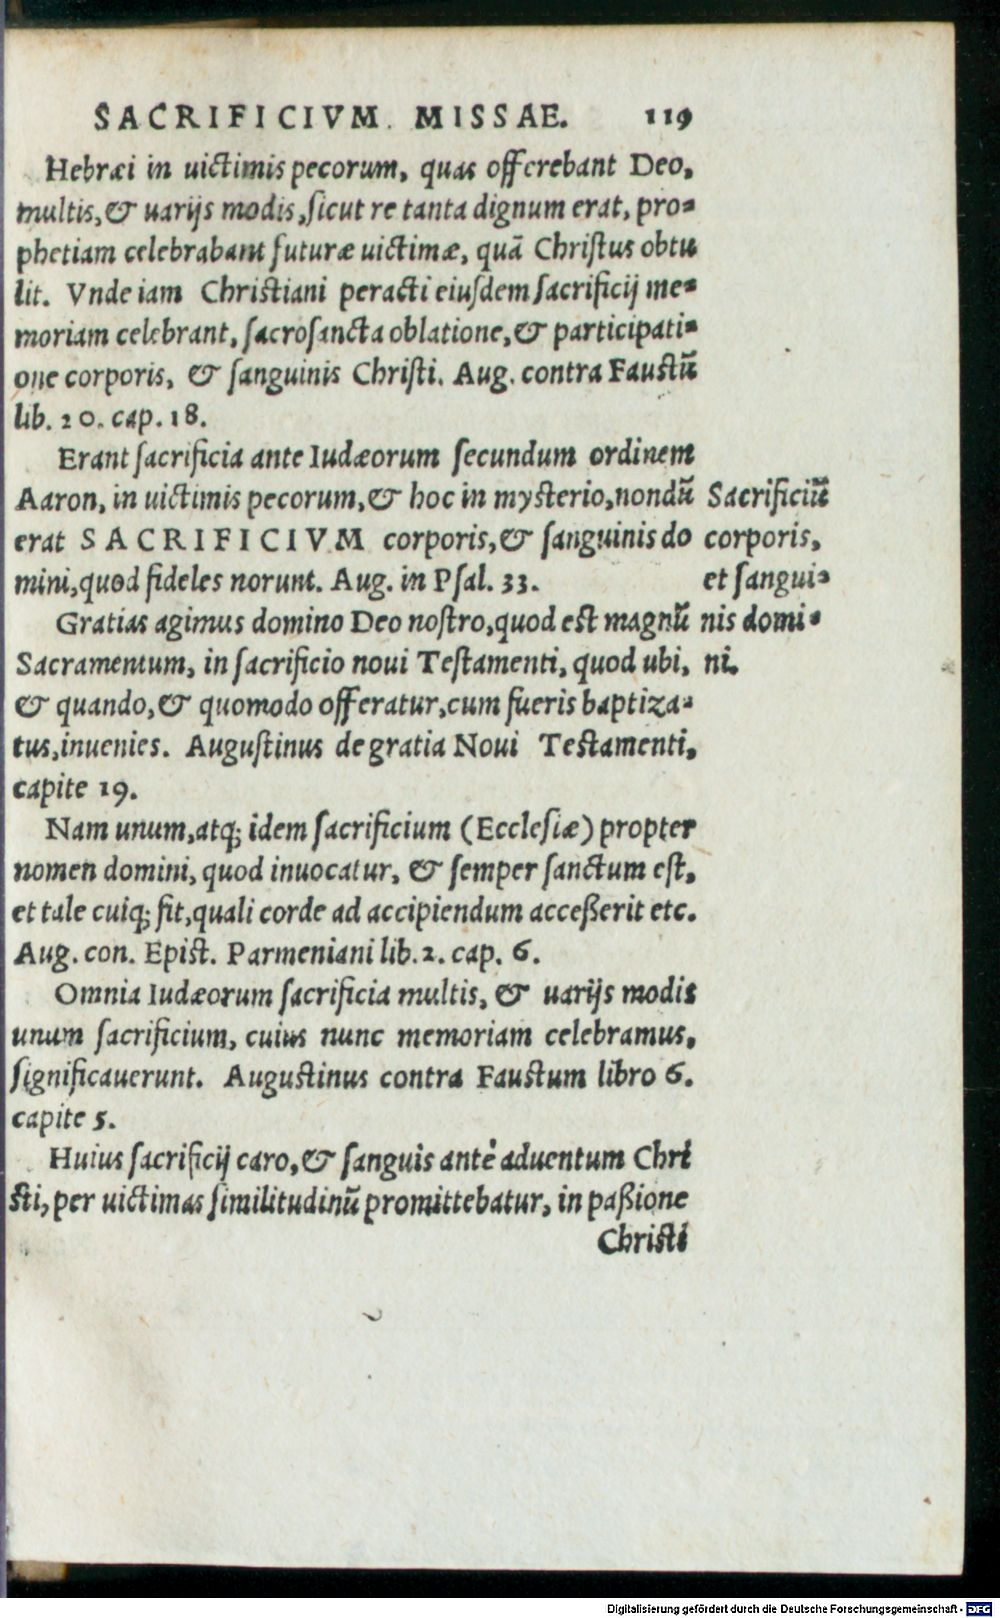 SACRIFICIVM. MISSAE. 119
Hebræi in uictimis pecorum, quas offerebant Deo,
multis, & uarijs modis, sicut re tanta dignum erat, pro-
phetiam celebrabant futuræ uictimæ, quā Christus obtu
lit. Vnde iam Christiani peracti eiusdem sacrificij me-
moriam celebrant, sacrosancta oblatione, & participati-
one corporis, & sanguinis Christi. Aug. contra Faustū
lib. 20. cap. 18.
Erant sacrificia ante Iudæorum secundum ordinem
Aaron, in uictimis pecorum, & hoc in mysterio, nondū
erat SACRIFICIVM corporis, & sanguinis do
mini, quod fideles norunt. Aug. in Psal. 33.
Sacrificiū
corporis,
et sangui-
nis domi-
ni.
Gratias agimus domino Deo nostro, quod est magnū
Sacramentum, in sacrificio noui Testamenti, quod ubi,
& quando, & quomodo offeratur, cum fueris baptiza-
tus, inuenies. Augustinus de gratia Noui Testamenti,
capite 19.
Nam unum, atq; idem sacrificium (Ecclesiæ) propter
nomen domini, quod inuocatur, & semper sanctum est,
et tale cuiq; fit, quali corde ad accipiendum acceßerit etc.
Aug. con. Epist. Parmeniani lib. 2. cap. 6.
Omnia Iudæorum sacrificia multis, & uarijs modis
unum sacrificium, cuius nunc memoriam celebramus,
significauerunt. Augustinus contra Faustum libro 6.
capite 5.
Huius sacrificij caro, & sanguis antè aduentum Chri
sti, per uictimas similitudinū promittebatur, in paßione
Christi
Digitalisierung gefördert durch die Deutsche Forschungsgemeinschaft - DFG